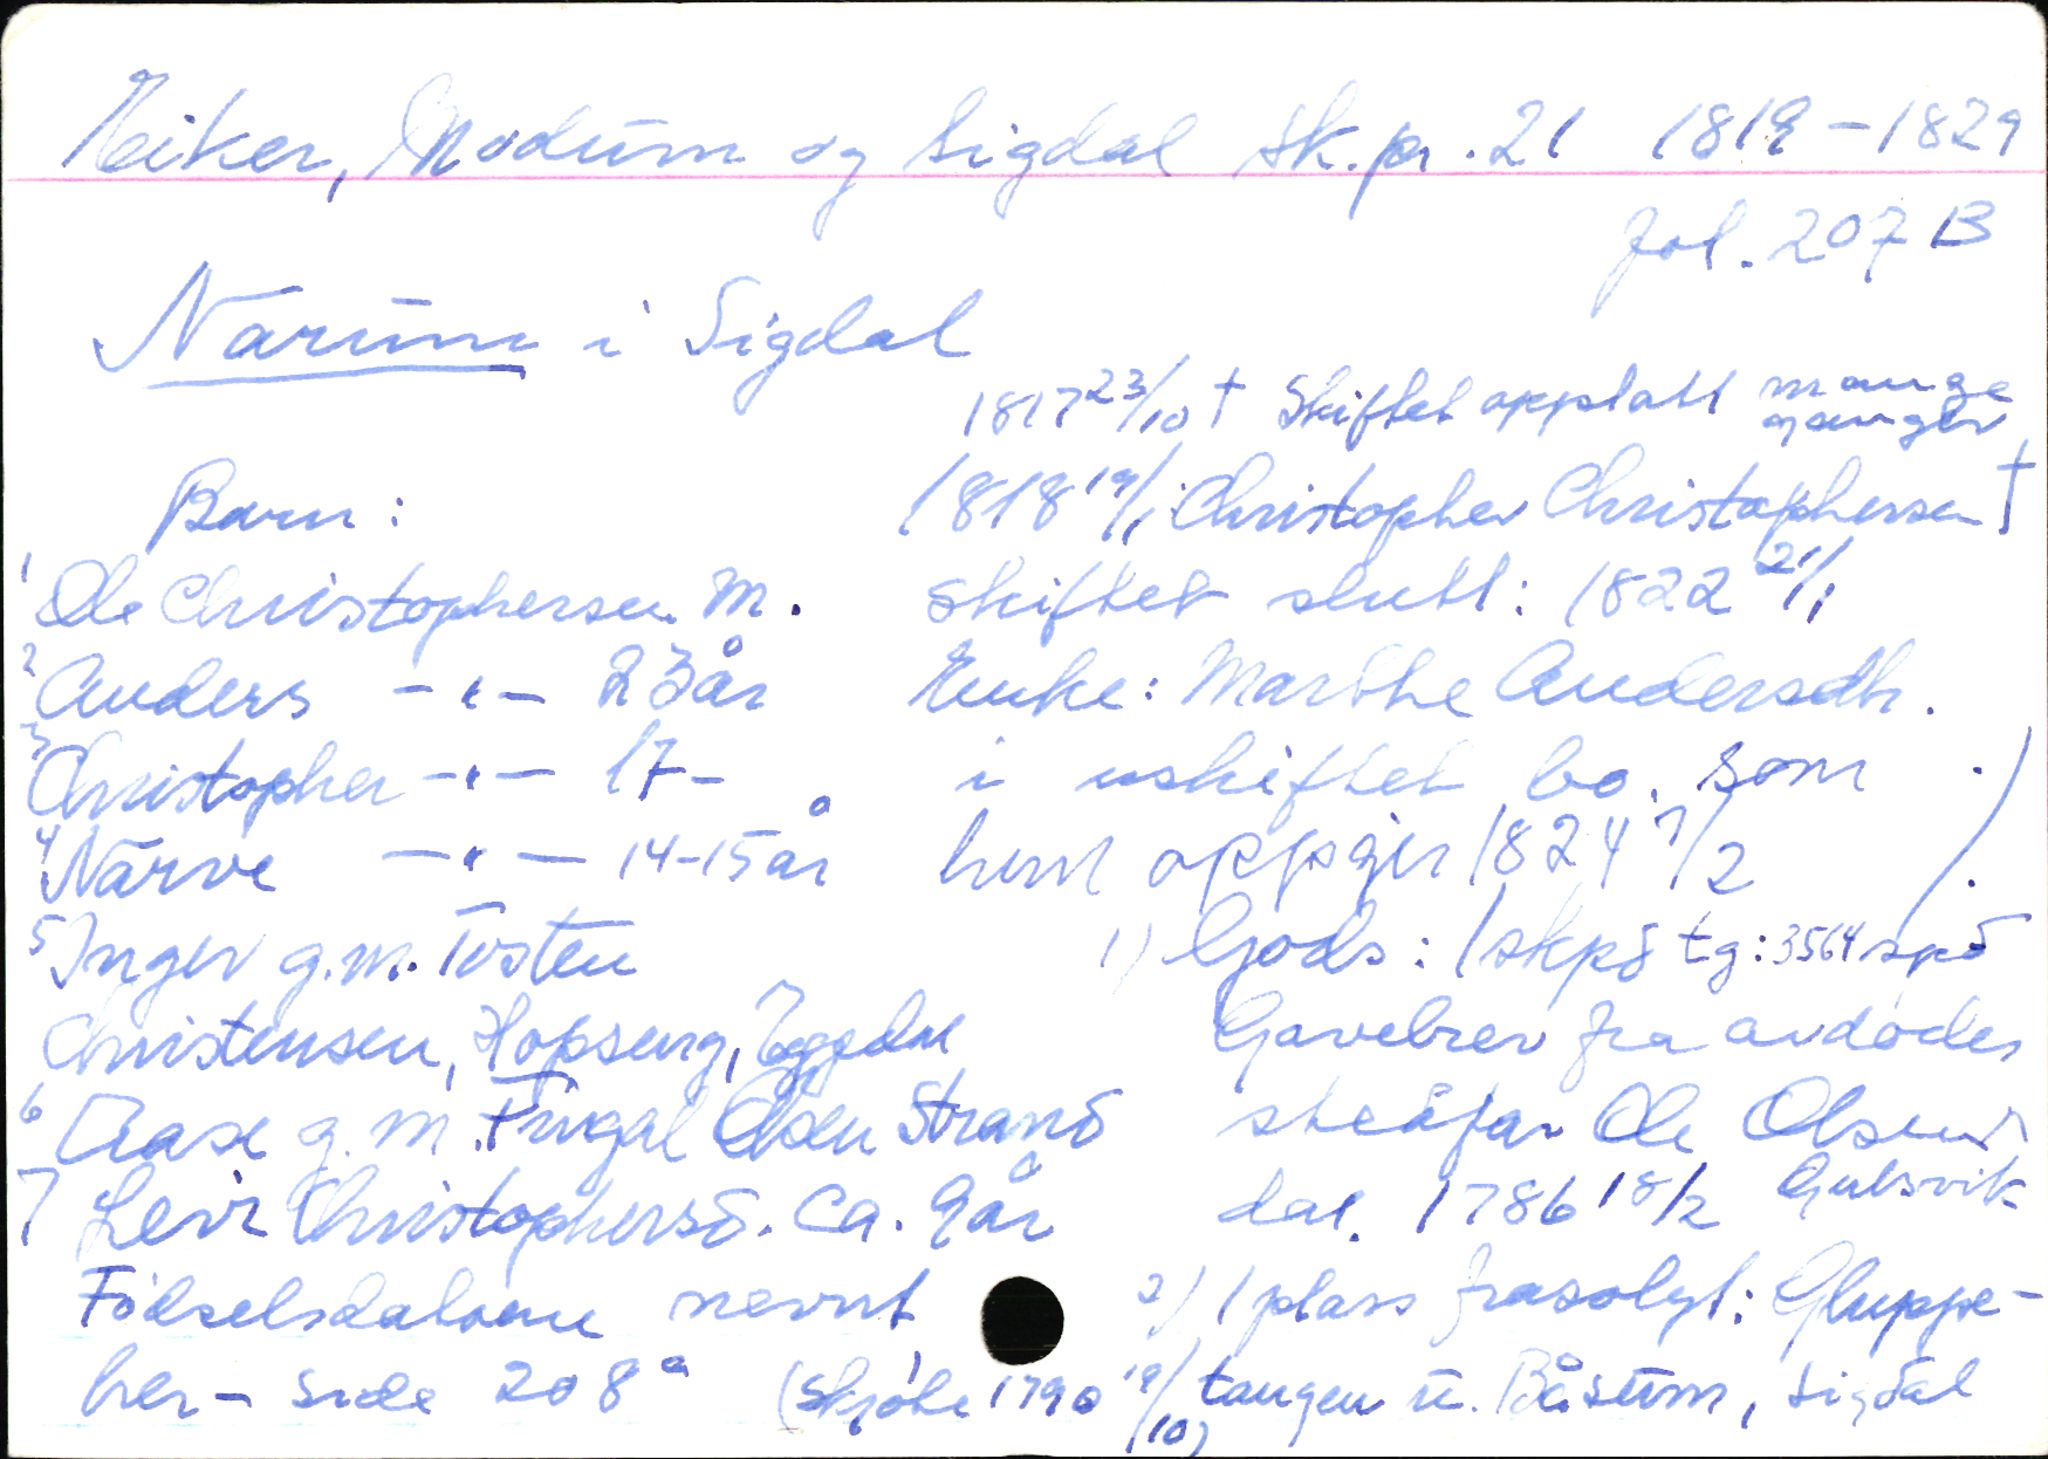 Eiker, Modum og Sigdal sk.pr. 21 1819-1829
fol. 207 B
Narum i Sigdal
1817 23/10 † Skiftet opptatt mange ganger
1818 19/1 Christopher Christophersen †
skiftet slutt: 1822 21/1
Enke: Marthe Andersdtr.
i uskiftet bo som
hun oppgir 1824 7/2
Barn:
1 Ole Christophersen M.
2 Anders -"- 23 år
3 Christopher -"- 17 -
4 Narve -"- 14-15 år
5 Inger g.m. Tosten
Christensen, Hopseng, Eggedal
6 Aase g.m. Fingal Olsen Strand
7 Levi Christophersd. ca. 9 år
Födselsdatoene nevnt
her - side 208 a
1) Gods: 1 skpd tg: 3564 spd
Gavebrev fra avdødes
stedfar Ole Olsen
Gulsvik
dat. 1786 18/2
2) 1 plass frasolgt: Gluppe-
tangen u. Båsum, Sigdal
(Skjöte 1790 19/10)